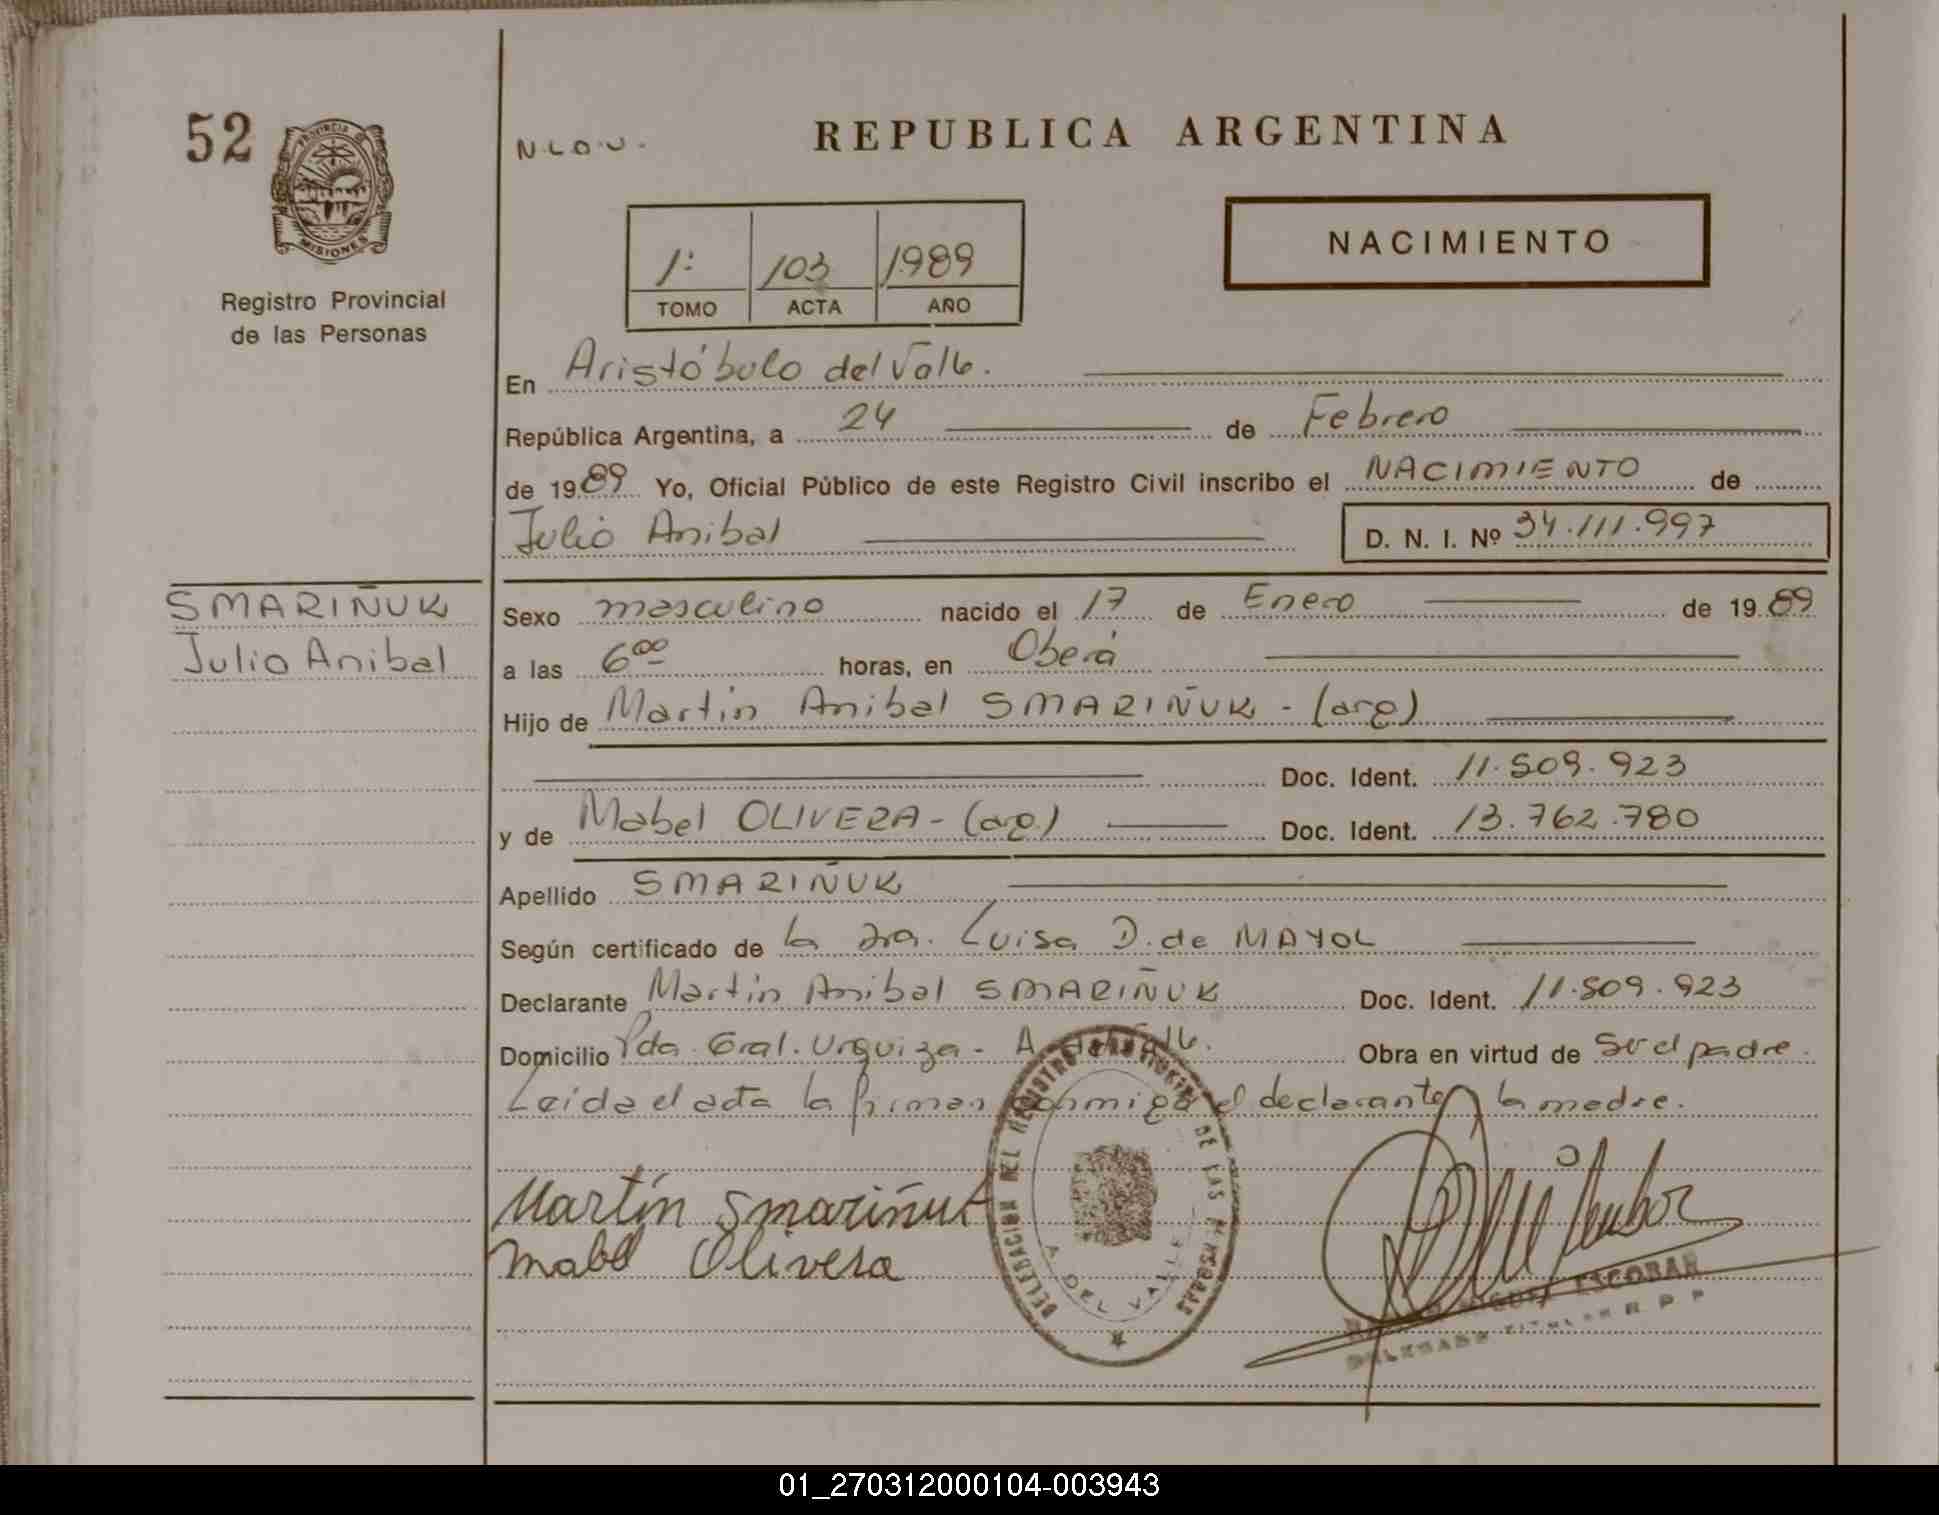 52
PROVINCIA DE
MISIONES
Registro Provincial
de las Personas
REPUBLICA ARGENTINA
NACIMIENTO
1: 103 1989
TOMO ACTA AÑO
En Aristóbulo del Valle.
República Argentina, a 24 de Febrero
de 1989 Yo, Oficial Público de este Registro Civil inscribo el NACIMIENTO de
Julio Anibal D. N. I. Nº 34.111.997
SMARIÑUK
Julio Anibal
Sexo masculino nacido el 17 de Enero de 1989
a las 6 00 horas, en Oberá
Hijo de Martin Anibal SMARIÑUK - (arg)
Doc. Ident. 11.509.923
y de Mabel OLIVERA - (arg.) Doc. Ident. 13.762.780
Apellido SMARIÑUK
Según certificado de la Dra. Luisa D. de MAYOL
Declarante Martin Anibal SMARIÑUK Doc. Ident. 11.509.923
Domicilio Pda. Gral. Urquiza - A. del Valle. Obra en virtud de Ser el padre.
Leida el acta la firman conmigo el declarante y la madre.
Martín Smariñuk
Mabel Olivera
DELEGACION DEL REGISTRO PROVINCIAL DE LAS PERSONAS
A. DEL VALLE
MIGUEL ESCOBAR
DELEGADO TITULAR R. P. P.
01_270312000104-003943